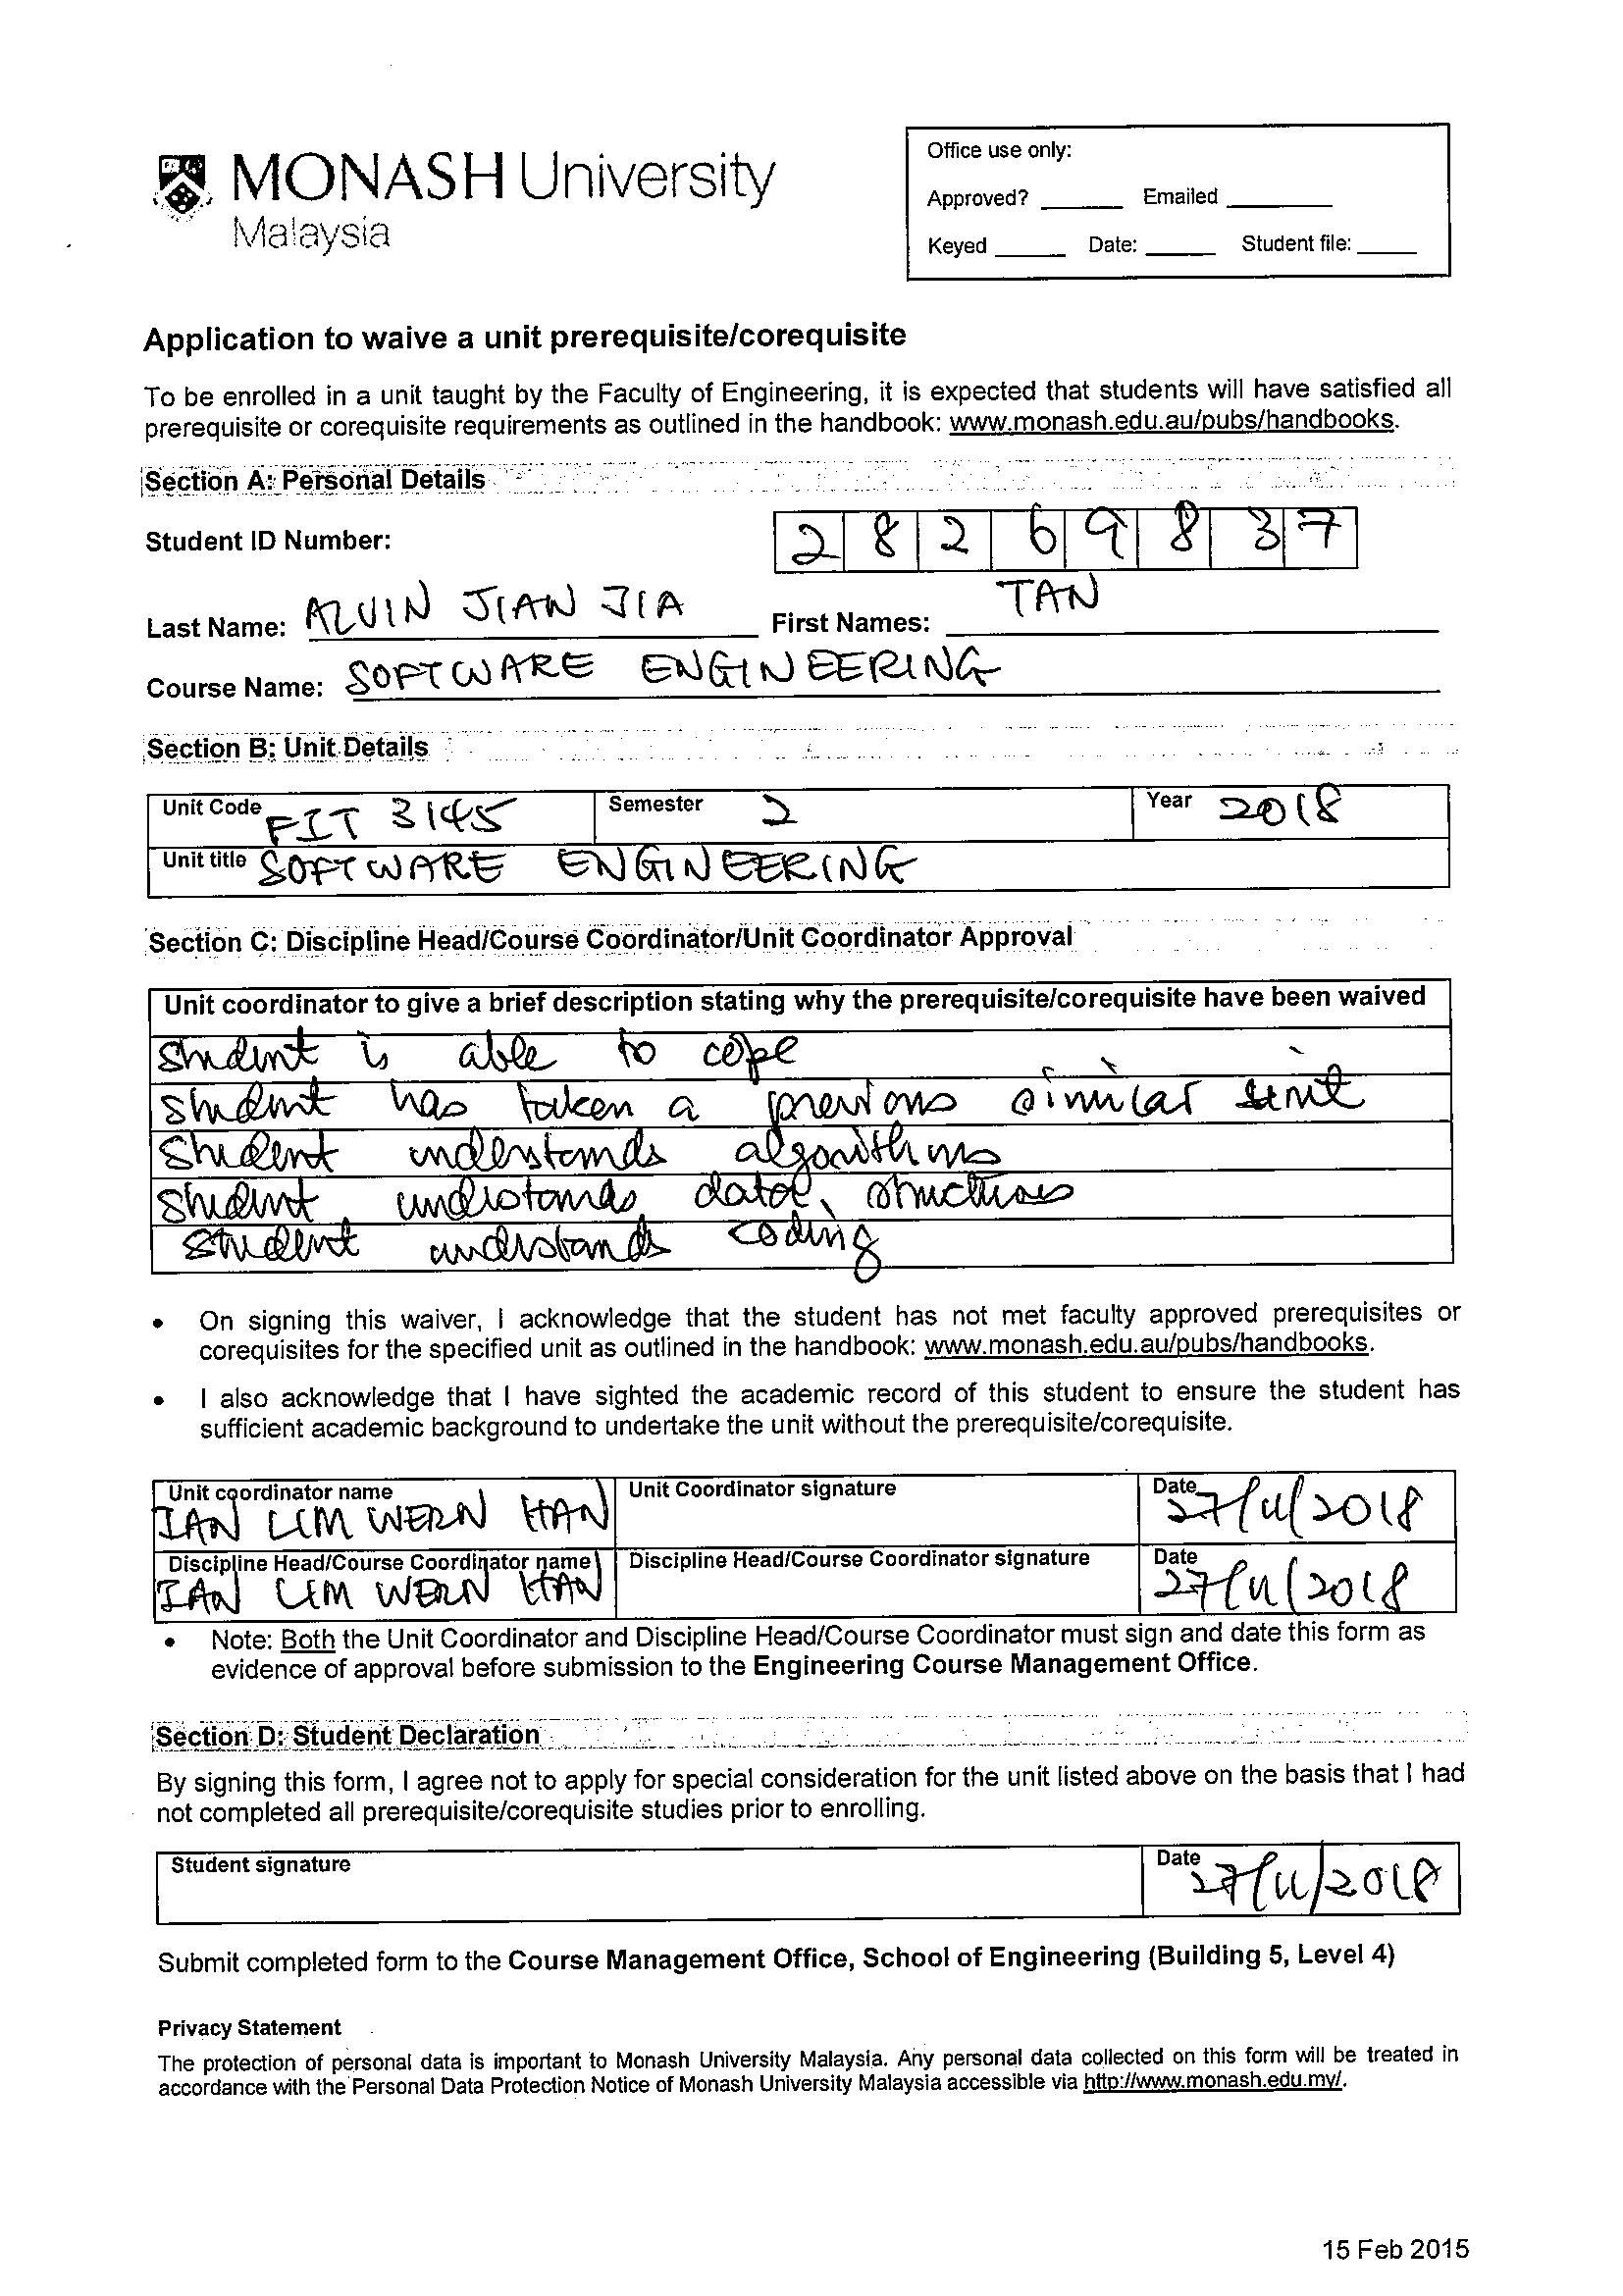 MONASH University
Malaysia
Office use only:
Approved? ______ Emailed ________
Keyed _____ Date: _____ Student file: ____
Application to waive a unit prerequisite/corequisite
To be enrolled in a unit taught by the Faculty of Engineering, it is expected that students will have satisfied all
prerequisite or corequisite requirements as outlined in the handbook: www.monash.edu.au/pubs/handbooks.
Section A: Personal Details
Student ID Number: 2 8 2 6 9 8 3 7
Last Name: ALVIN JIAN JIA First Names: TAN
Course Name: SOFTWARE ENGINEERING
Section B: Unit Details
Unit Code FIT 3145 Semester 2 Year 2018
Unit title SOFTWARE ENGINEERING
Section C: Discipline Head/Course Coordinator/Unit Coordinator Approval
Unit coordinator to give a brief description stating why the prerequisite/corequisite have been waived
student is able to cope
student has taken a previous similar unit
student understands algorithms
student understands data structures
student understands coding
• On signing this waiver, I acknowledge that the student has not met faculty approved prerequisites or
corequisites for the specified unit as outlined in the handbook: www.monash.edu.au/pubs/handbooks.
• I also acknowledge that I have sighted the academic record of this student to ensure the student has
sufficient academic background to undertake the unit without the prerequisite/corequisite.
Unit coordinator name Unit Coordinator signature Date
IAN LIM WERN HAN 27/11/2018
Discipline Head/Course Coordinator name Discipline Head/Course Coordinator signature Date
IAN LIM WERN HAN 27/11/2018
• Note: Both the Unit Coordinator and Discipline Head/Course Coordinator must sign and date this form as
evidence of approval before submission to the Engineering Course Management Office.
Section D: Student Declaration
By signing this form, I agree not to apply for special consideration for the unit listed above on the basis that I had
not completed all prerequisite/corequisite studies prior to enrolling.
Student signature Date 27/11/2018
Submit completed form to the Course Management Office, School of Engineering (Building 5, Level 4)
Privacy Statement
The protection of personal data is important to Monash University Malaysia. Any personal data collected on this form will be treated in
accordance with the Personal Data Protection Notice of Monash University Malaysia accessible via http://www.monash.edu.my/.
15 Feb 2015